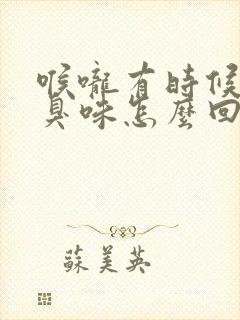 喉嚨有時候
臭味怎麼回
蘇美英